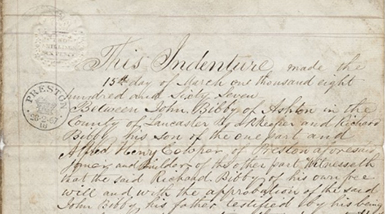 This Indenture made the
15th day of March one thousand eight
hundred and Sixty Seven
Between John Bibby of Ashton in the
County of Lancaster and Richard
Bibby his son of the one part and
Alfred Henry of Preston aforesaid
Joiner and Builder of the other part Witnesseth
that the said Richard Bibby of his own free
will and with the approbation of the said
John Bibby his father testified by his being
PRESTON